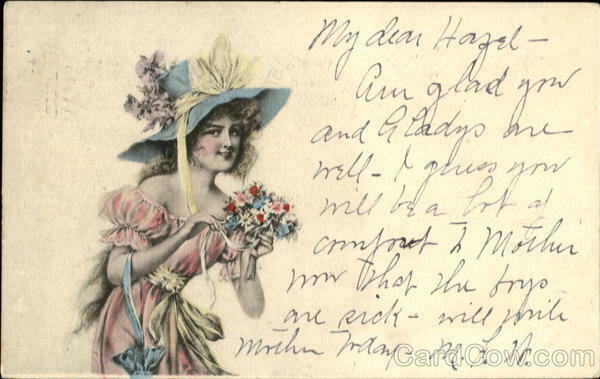 My dear Hazel -
Am glad you
and Gladys are
well - I guess you
will be a lot of
comfort to Mother
now that the boys
are sick - will write
Mother today - M. L. W.
CardCow.com